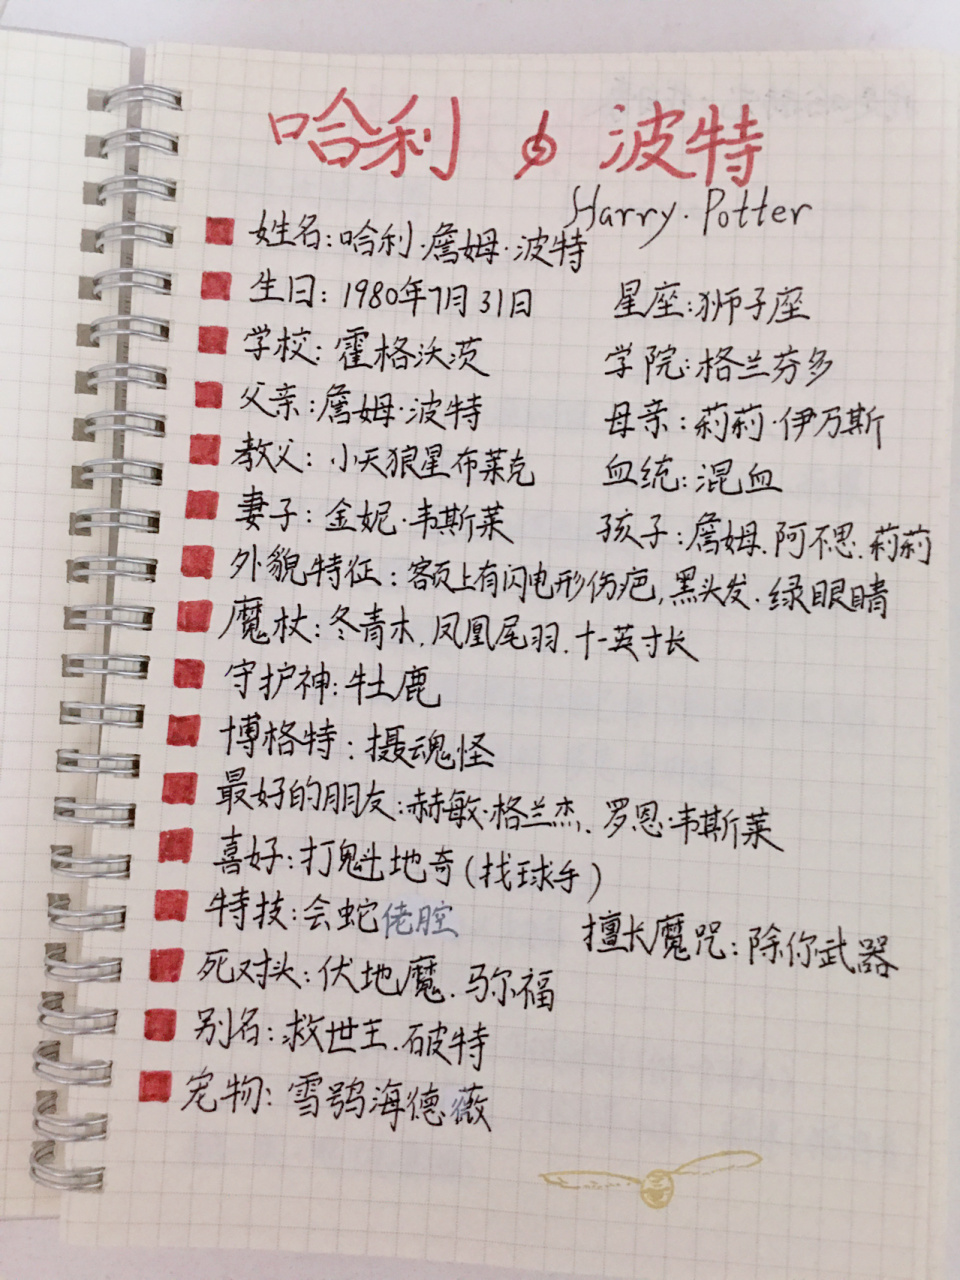 哈利 波特
Harry·Potter
姓名:哈利·詹姆·波特
生日:1980年7月31日 星座:狮子座
学校:霍格沃茨 学院:格兰芬多
父亲:詹姆·波特 母亲:莉莉·伊万斯
教父:小天狼星布莱克 血统:混血
妻子:金妮·韦斯莱 孩子:詹姆.阿不思.莉莉
外貌特征:客页上有闪电形伤疤,黑头发.绿眼睛
魔杖:冬青木,凤凰尾羽.十一英寸长
守护神:牡鹿
博格特:摄魂怪
最好的朋友:赫敏·格兰杰、罗恩·韦斯莱
喜好:打魁地奇(找球手)
特技:会蛇佬腔 擅长魔咒:除你武器
死对头:伏地魔.马尔福
别名:救世主.破特
宠物:雪鸮海德薇